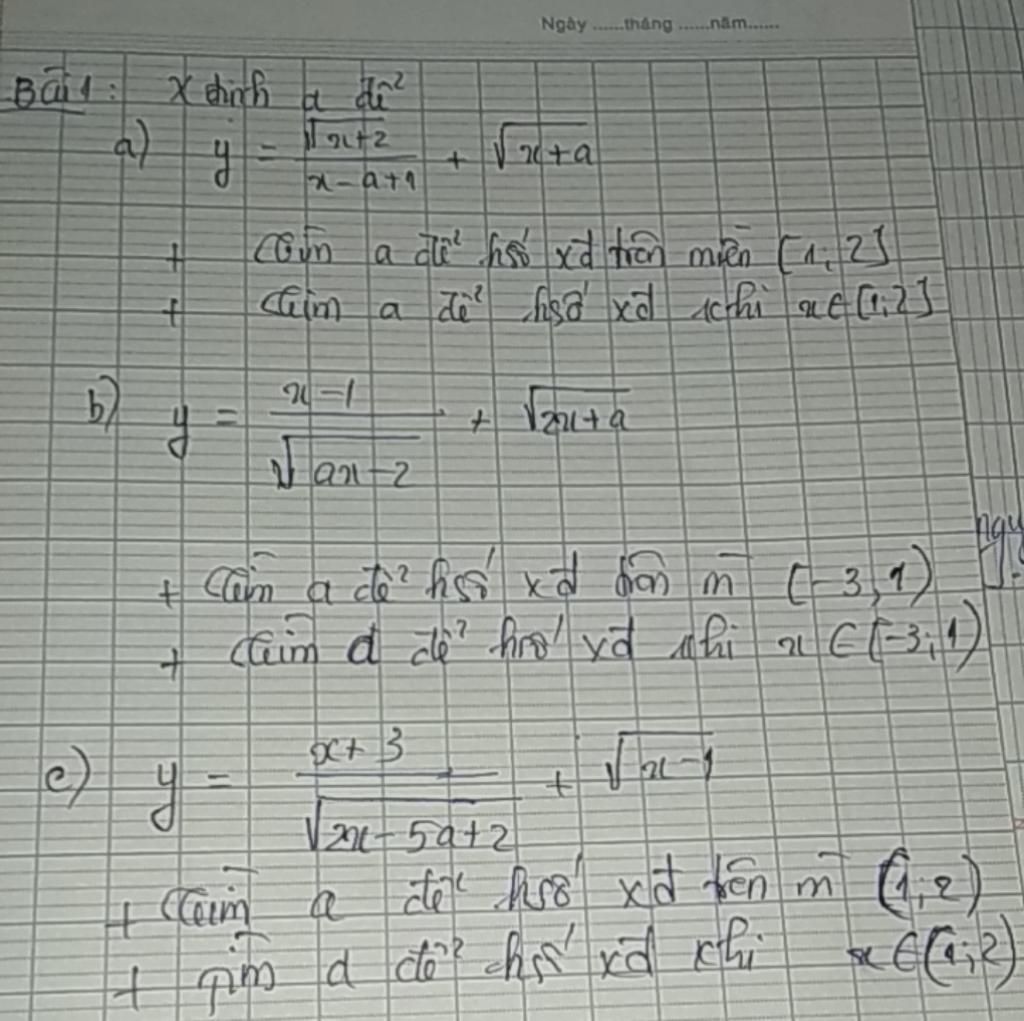 Ngày ......tháng ......năm......
Bài 1: X định a để
a) y = \frac{\sqrt{x+2}}{x-a+1} + \sqrt{x+a}
+ Tìm a để hsố xđ trên miền [1; 2]
+ Tìm a để hsố xđ khi x∈[1; 2]
b) y = \frac{x-1}{\sqrt{ax-2}} + \sqrt{2x+a}
+ Tìm a để hsố xđ trên m [-3; 1)
+ Tìm a để hsố xđ khi x ∈ [-3; 1)
c) y = \frac{x+3}{\sqrt{2x-5a+2}} + \sqrt{x-1}
+ Tìm a để hsố xđ trên m (1; 2)
+ Tìm a để hsố xđ khi x∈(1; 2)